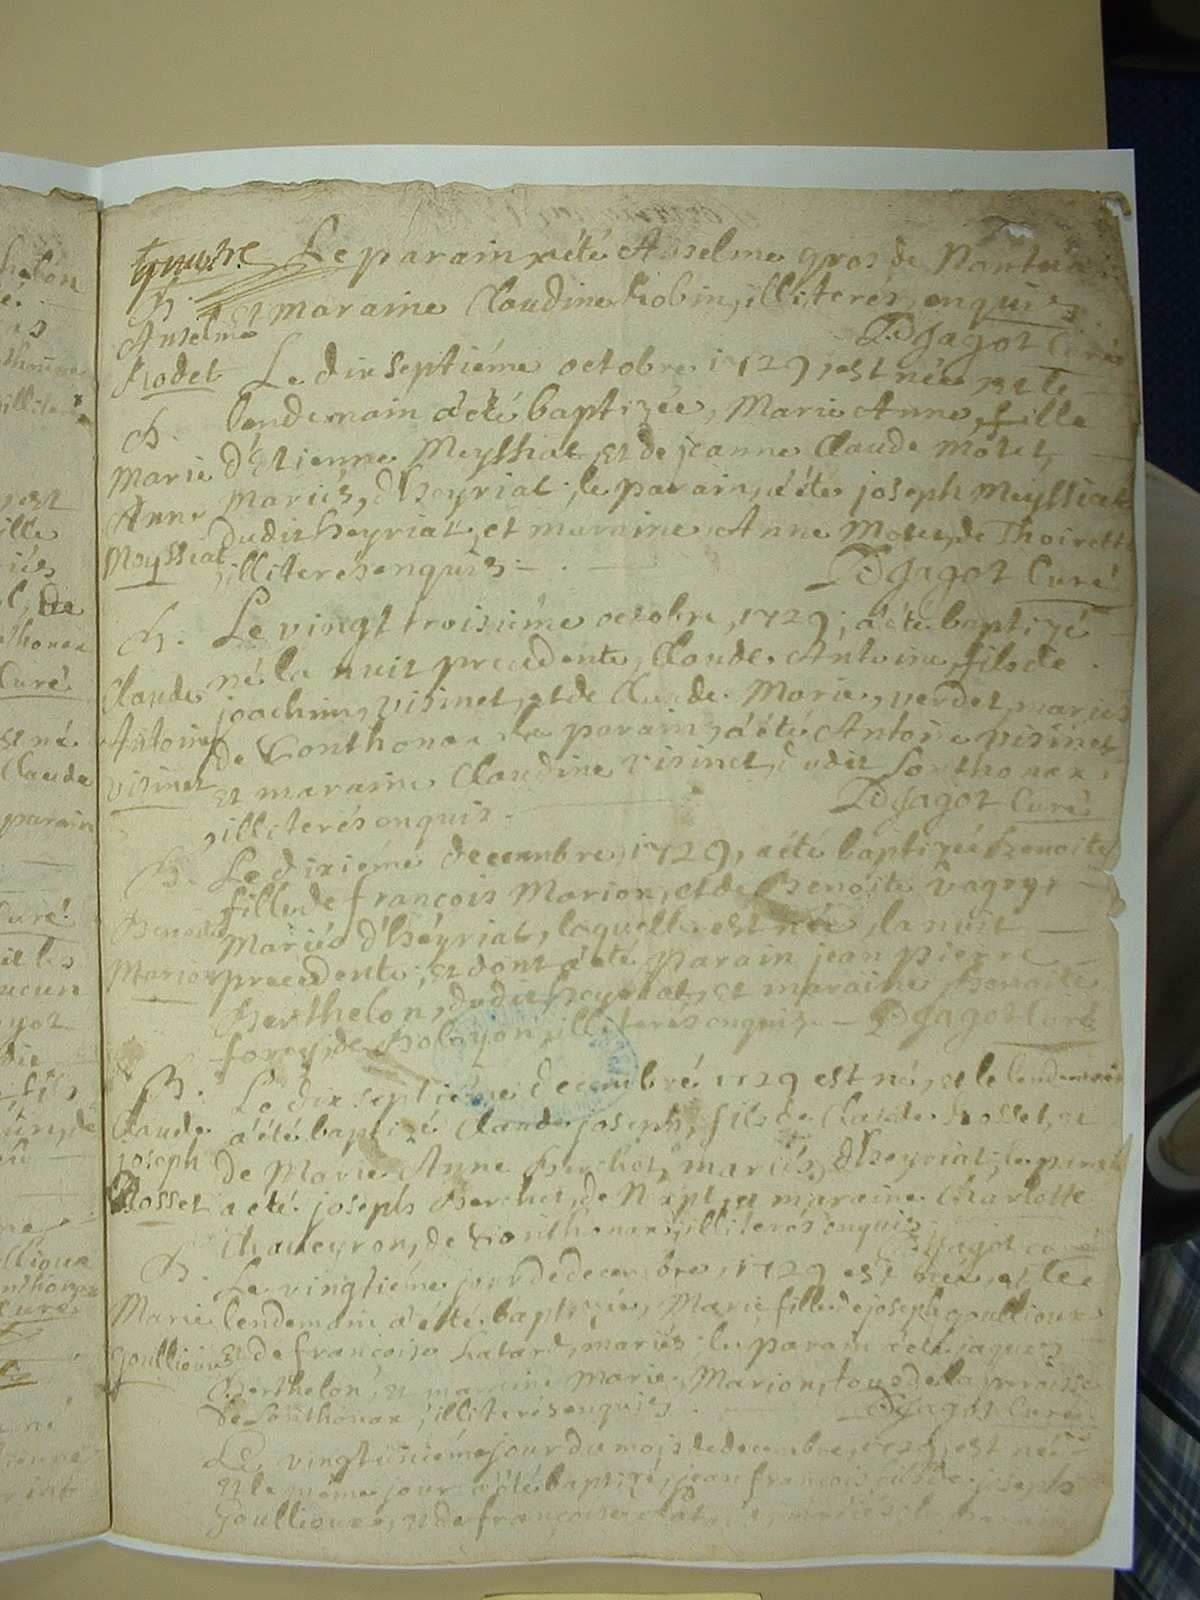 Le parain a été Anselme gros de Nantua
B. et maraine Claudine Robin, illiterés enquis,
Anselme
DJagot Curé
Rodet Le dix septiéme octobre 1729, est née, et le
B. lendemain a été baptizée, Marie Anne, fille
Marie d'Etienne Meyssiat, et de jeanne Claude Motet,
Anne mariés, d'heyriat; le parain, a été joseph Meyssiat
dudit heyriat, et maraine, Anne Motet, de Thoirette
Meyssiat, illiterés enquis. DJagot Curé
B. Le vingt troisiéme octobre, 1729, a été baptizé
né la nuit precedente, Claude Antoine, fils de
Claude joachim, visinet, et de Claude Marie, verdet, mariés
Antoine de Sonthonax le parain, a été Antoine visinet
visinet et maraine Claudine visinet, dudit Sonthonax,
illiterés enquis. DJagot Curé
B. Le dixiéme decembre, 1729, a été baptizée benoite
fille de francois Marion, et de Benoite
Benoite Mariés d'heyriat, laquelle est née, la nuit
Marion precedente, et dont a été parain jean pierre
Berthelon, dudit heyriat, et maraine, benoite
de Bolozon, illiterés enquis. DJagot Curé
B. Le dix septiéme decembre 1729 est né, et le lendemain
Claude a été baptizé Claude joseph, fils de Claude Rosset, et
joseph de Marie Anne Berchet, mariés, d'heyriat, le parain
Rosset a été joseph Berchet, de Napt, et maraine Charlotte
Chaveyron, de Sonthonax, illiterés enquis DJagot curé
B. Le vingtiéme jour de decembre, 1729 est née, et le
Marie lendemain a été baptizée, Marie, fille de joseph goullioux
goullioux et de francoise, mariés le parain a été jaques
Berthelon, et maraine Marie Marion, tous de la paroisse
de Sonthonax, illiterés enquis. DJagot Curé
Le vingtuniéme jour du mois de decembre, 1729, est né
et le même jour a été baptizé, jean francois fils de joseph
Goullioux, et de francoise, mariés, le parain